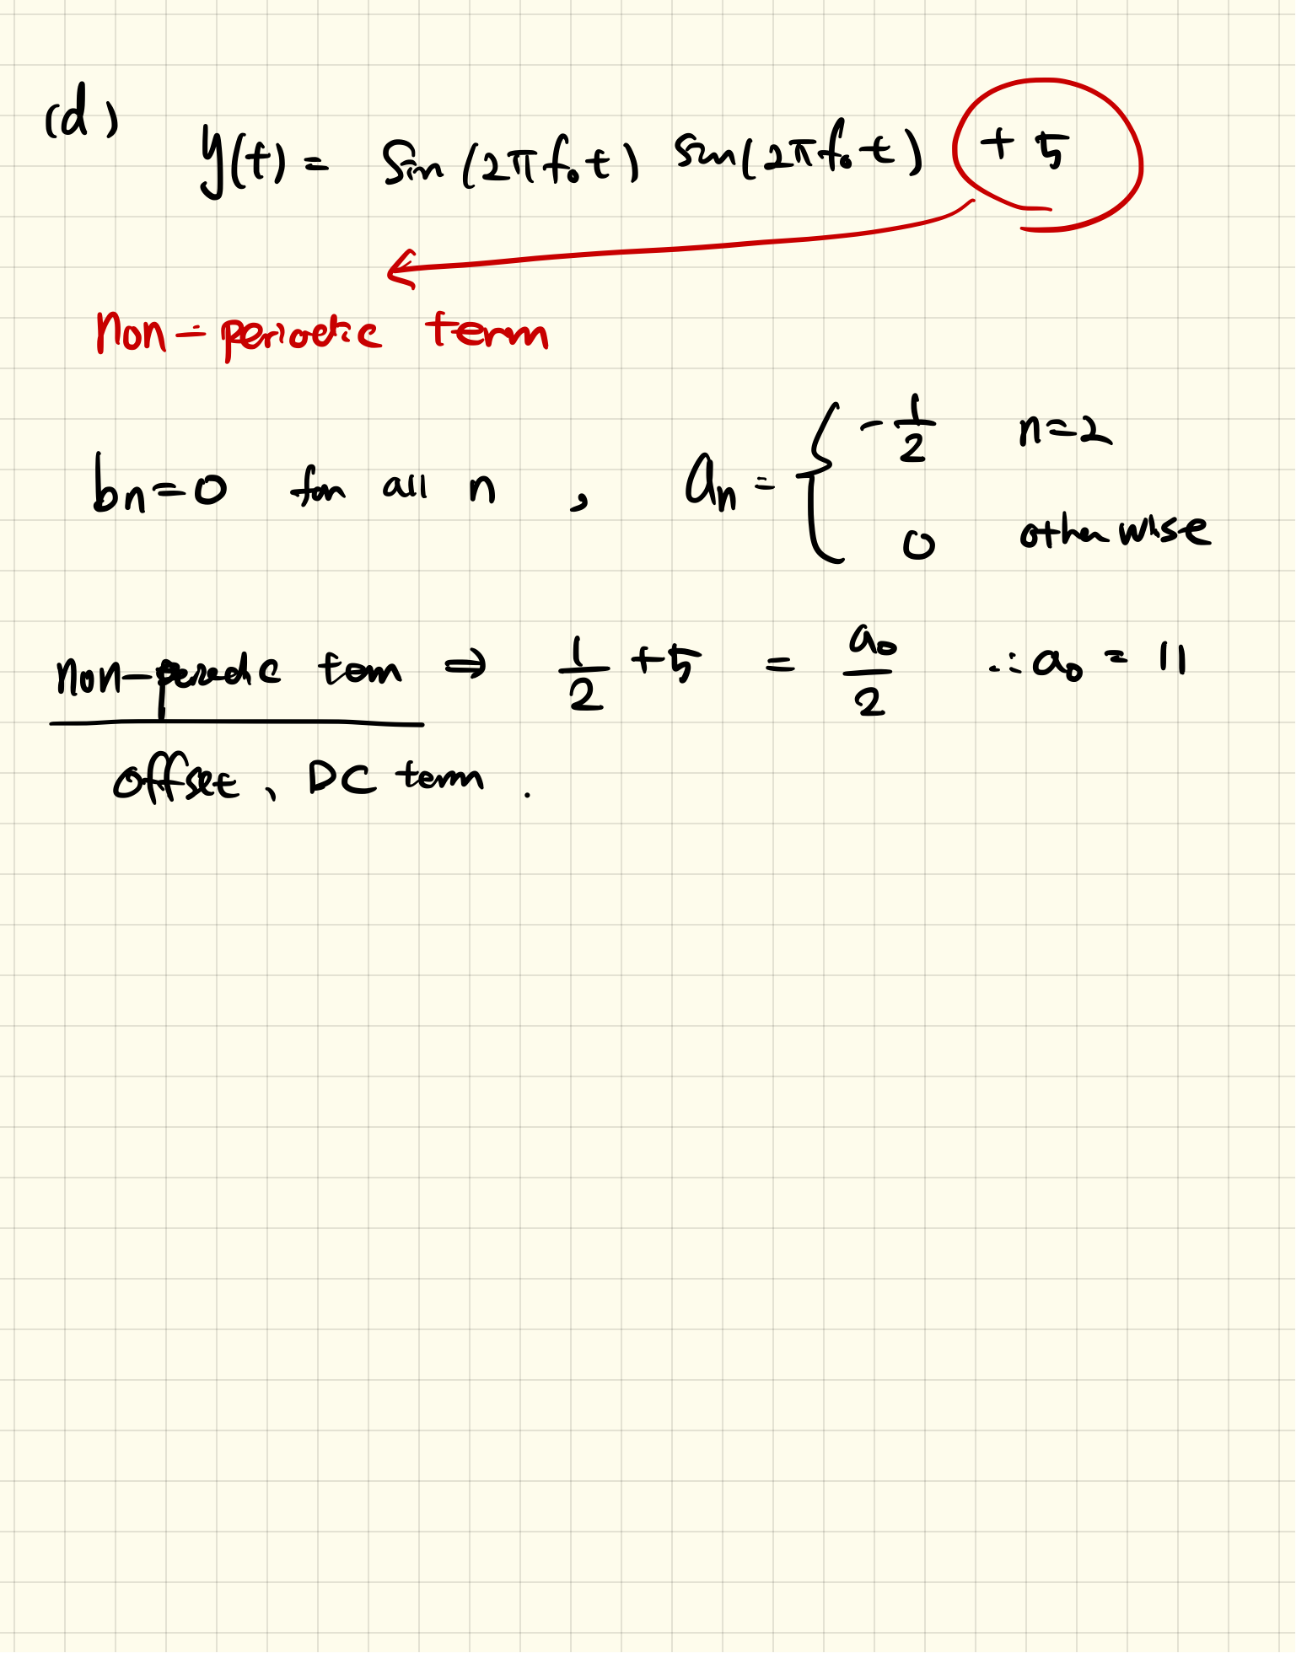 (d)
y(t) = Sin (2πf₀t) sin(2πf₀t) + 5
non-periodic term
bn=0 for all n , an = { -1/2 n=2
0 otherwise
non-peredic term ⇒ 1/2 +5 = a₀/2 ∴a₀ = 11
offset, DC term .